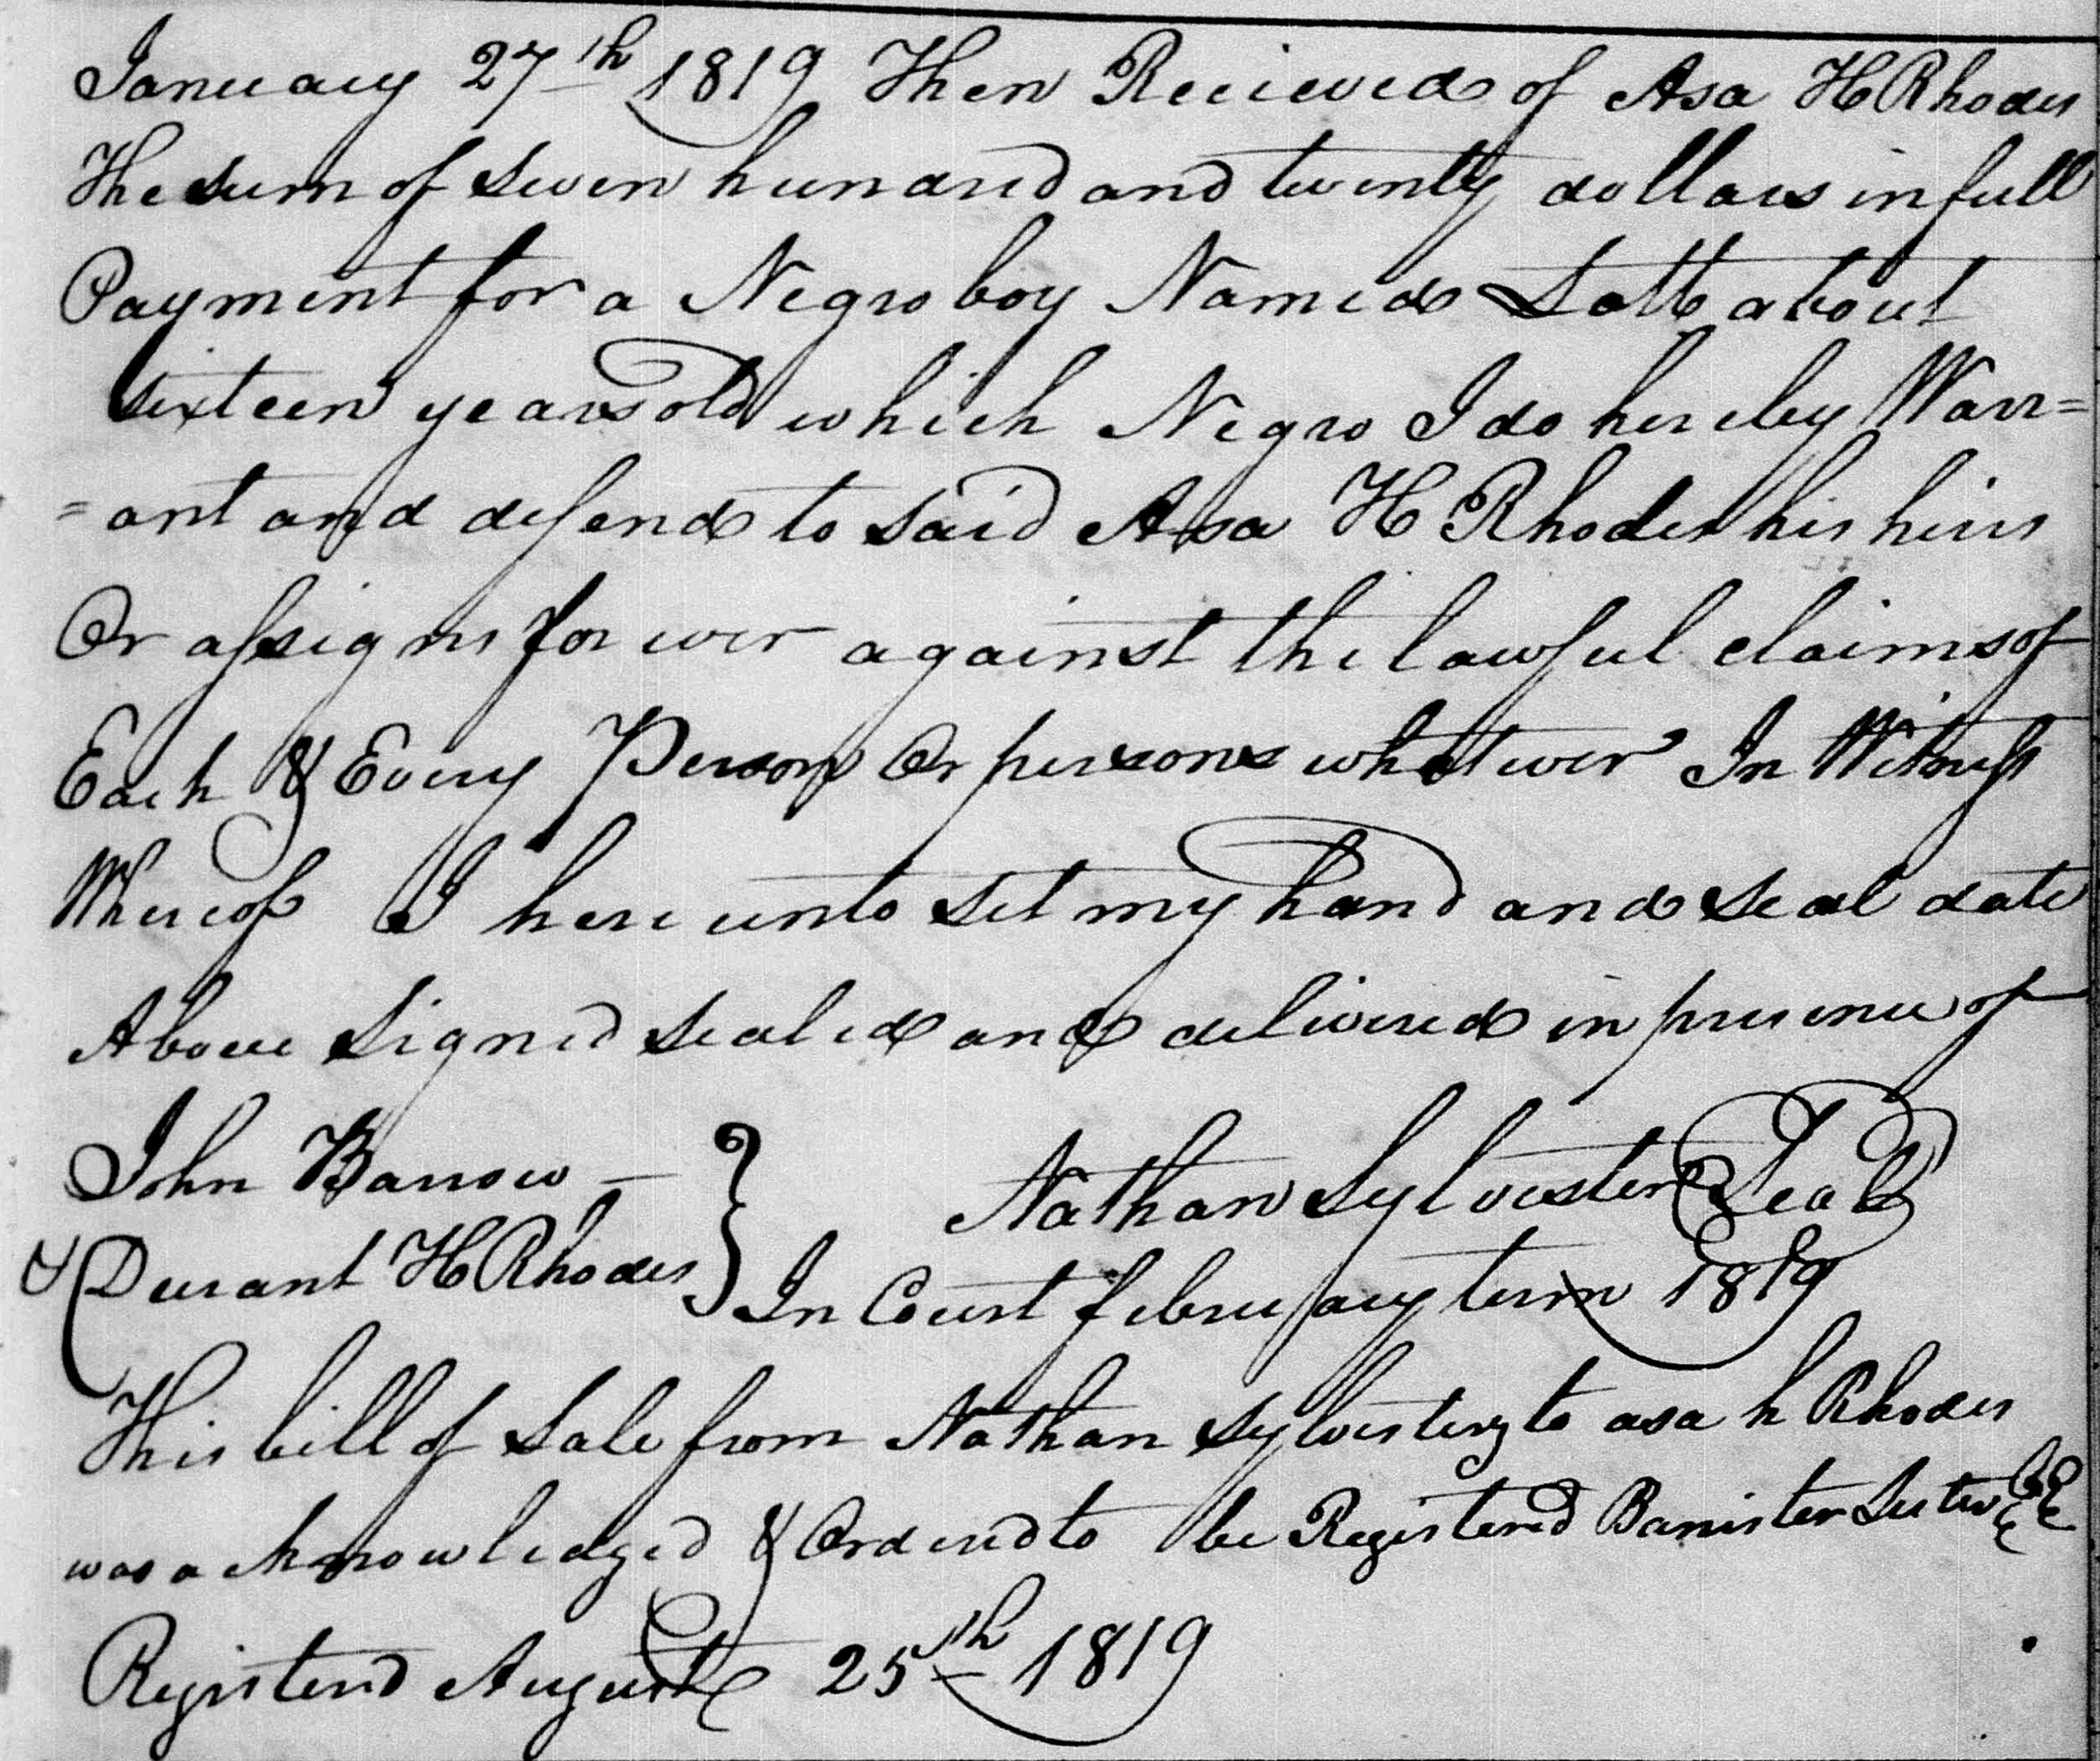 January 27th 1819 Then Recieved of Asa H Rhodes
The sum of Seven hundred and twenty dollars in full
Payment for a Negro boy Named Lott about
Sixteen years old which Negro I do hereby Warr=
=ant and defend to said Asa H Rhodes his heirs
Or assigns for ever against the lawful claims of
Each & Every Person Or persons whatever In Witness
Whereof I here unto set my hand and seal date
Above Signed sealed and delivered in presence of
John Barrow — Nathan Sylvester Seal
& Durant H Rhodes In Court february term 1819
This bill of Sale from Nathan Sylvester to asa h Rhodes
was acknowledged & Ordered to be Registered Banister
Registered August 25th 1819